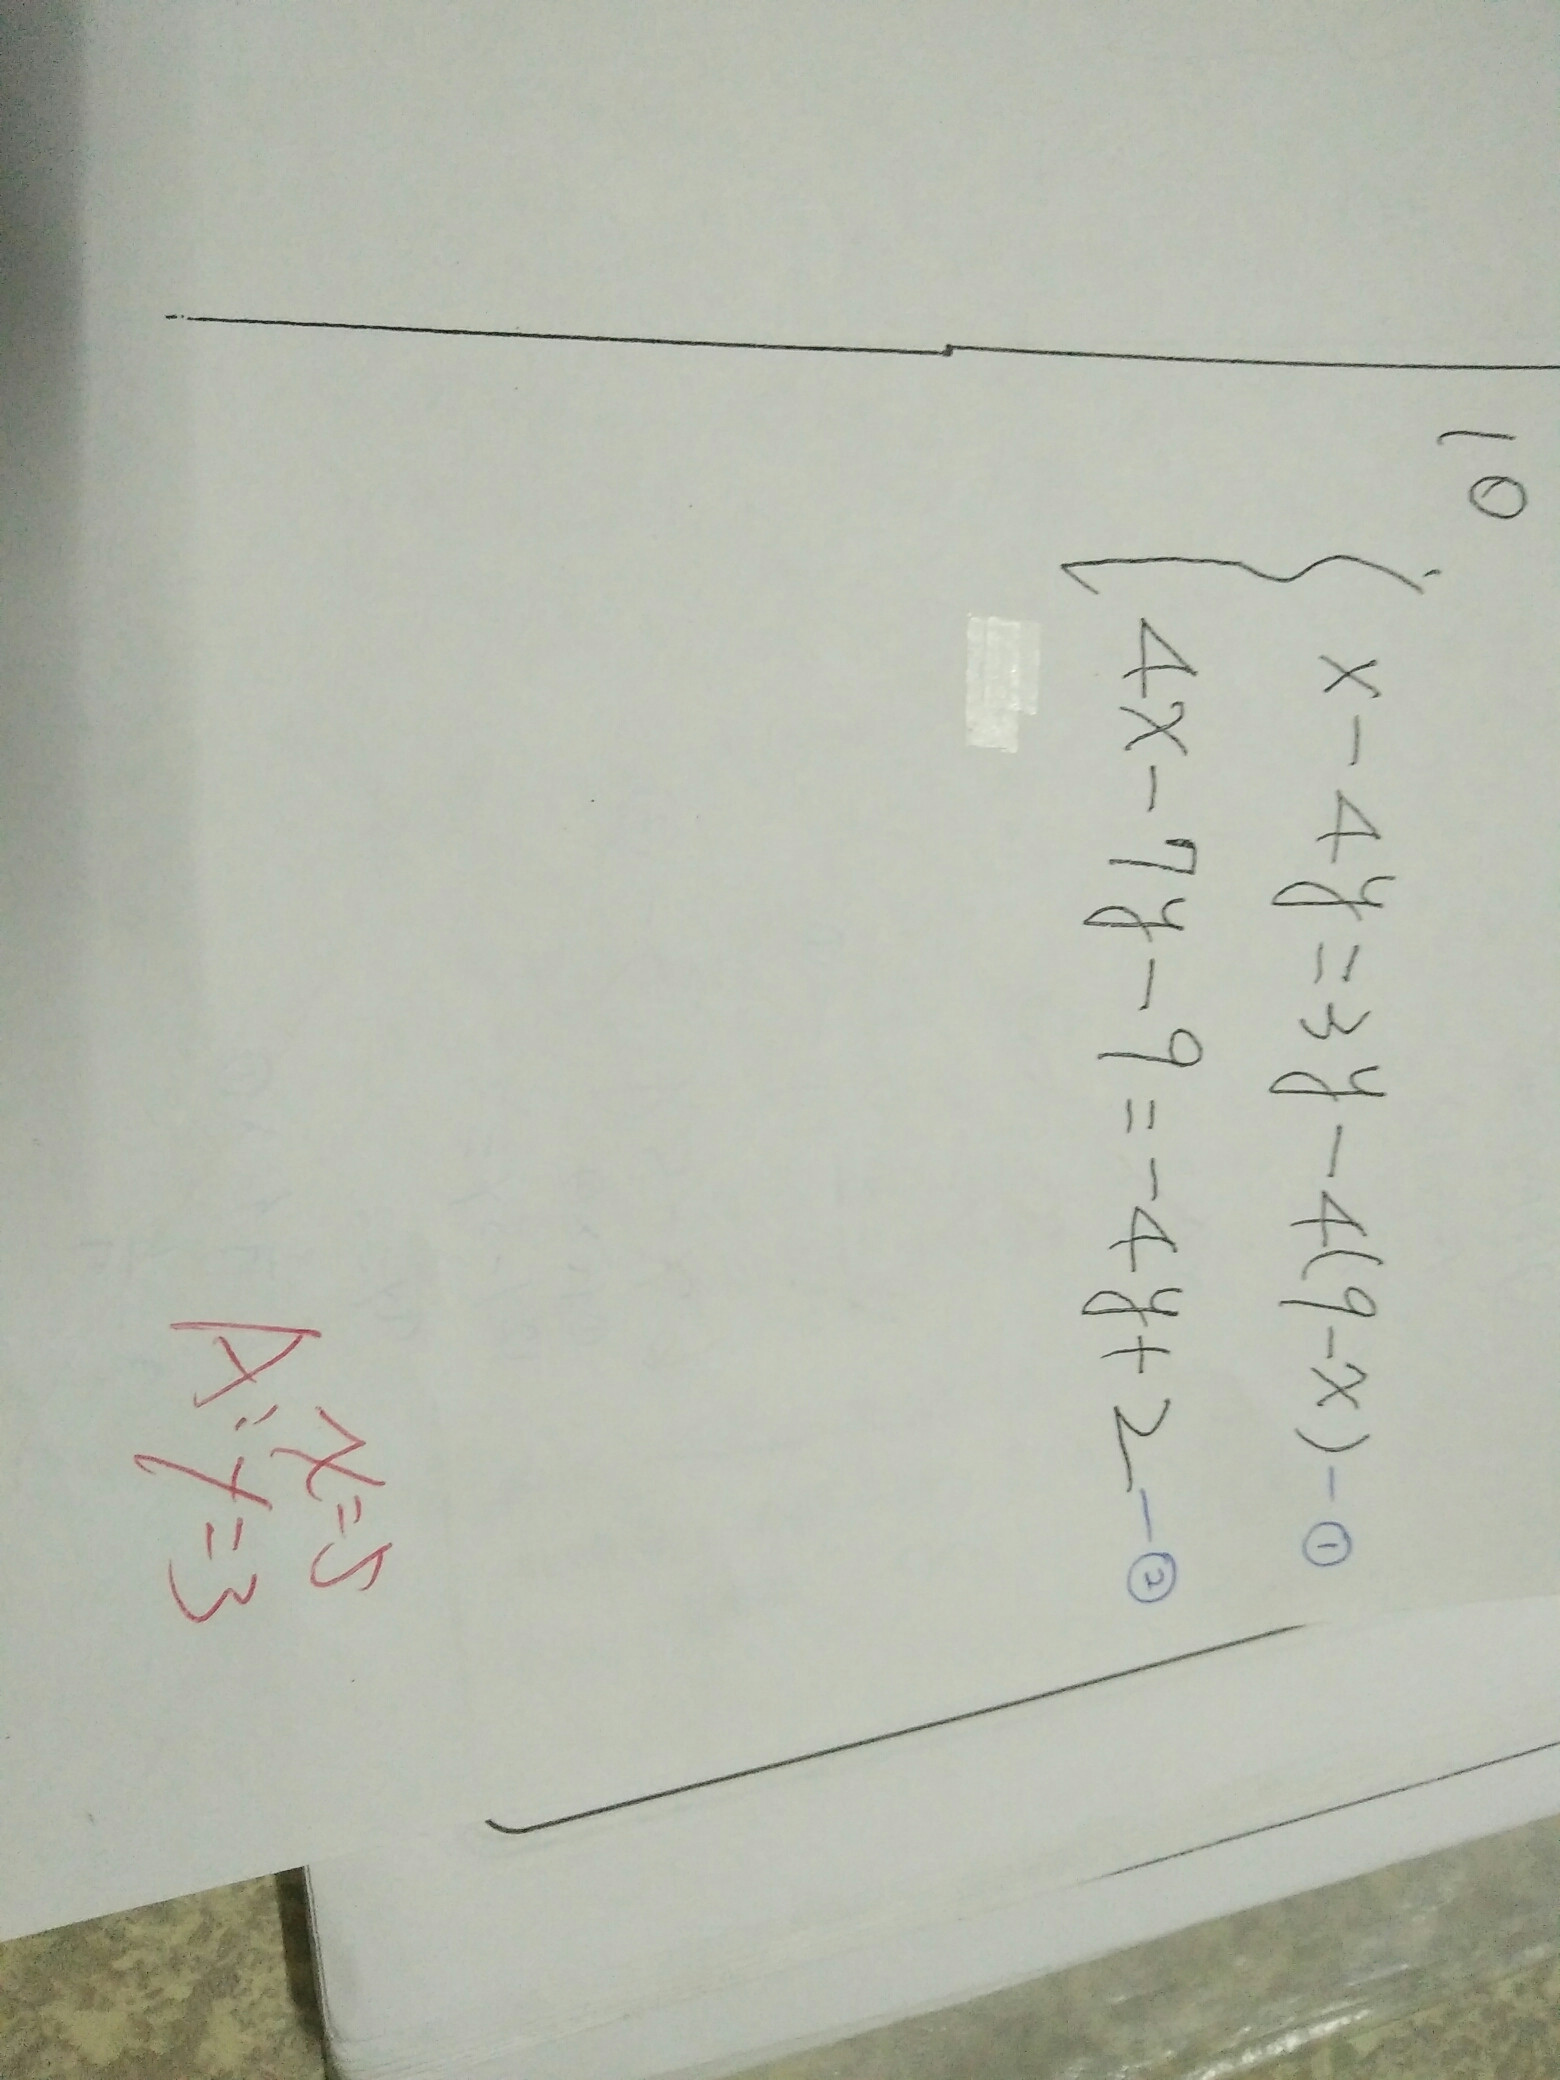 10
x-4y=3y-4(9-x)-①
4x-7y-9=-4y+2-②
x=5
A: y=3